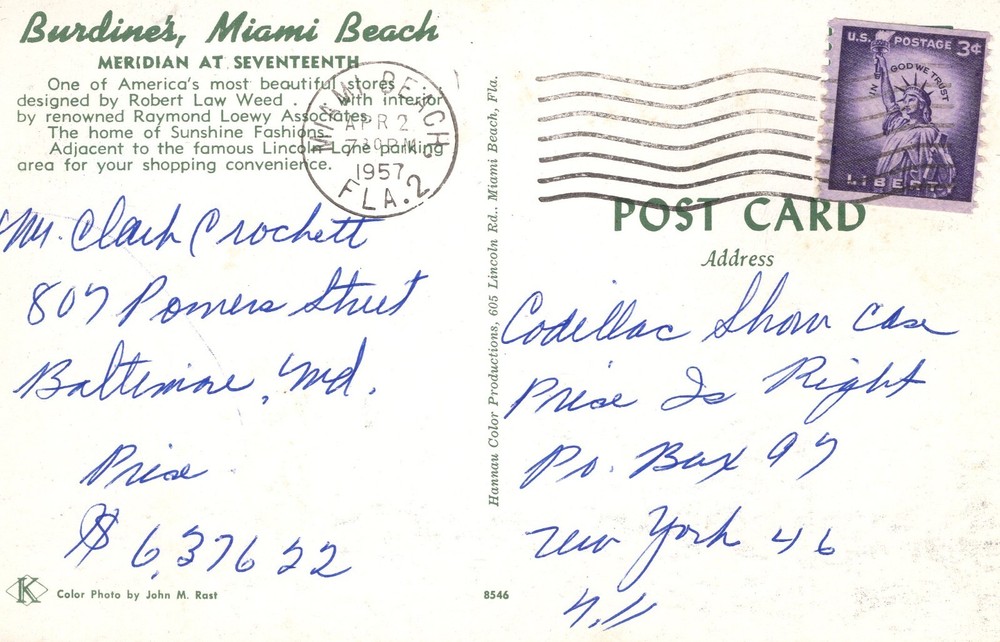 Burdine's, Miami Beach
MERIDIAN AT SEVENTEENTH
One of America's most beautiful stores
designed by Robert Law Weed . . . with interior
by renowned Raymond Loewy Associates.
The home of Sunshine Fashions.
Adjacent to the famous Lincoln Lane parking
area for your shopping convenience.
MIAMI BEACH
APR 2
7:30 PM
1957
FLA. 2
U.S. POSTAGE 3¢
IN GOD WE TRUST
LIBERTY
Mr. Clark Crockett
807 Powers Street
Baltimore, Md.
Price
$ 6,376 22
Color Photo by John M. Rast
K
Hannau Color Productions, 605 Lincoln Rd., Miami Beach, Fla.
8546
POST CARD
Address
Codillac Show Case
Price Is Right
Po. Box 97
New York 46
N.Y.